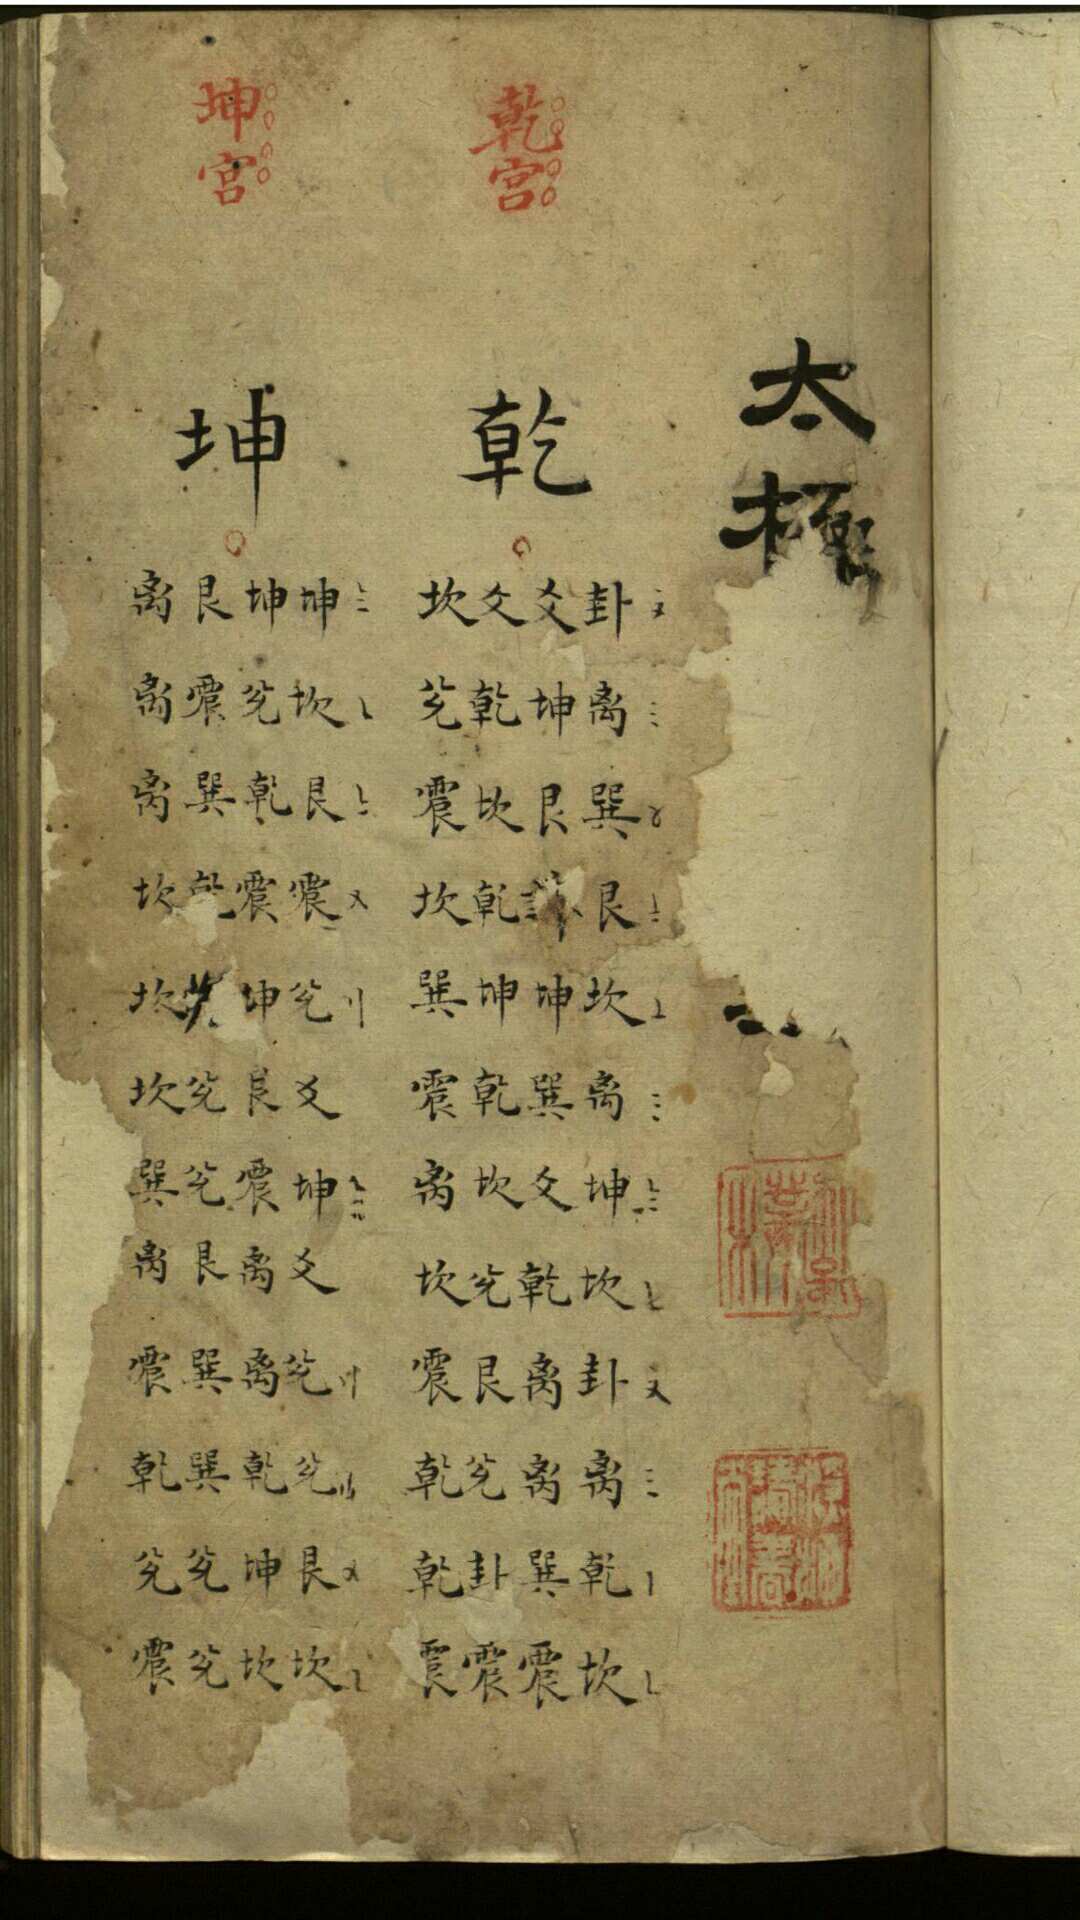 太極
乾宮
乾
卦离巽艮坎离坤坎卦离乾坎
爻坤艮坤巽爻乾离离巽震
爻乾坎乾坤乾坎兊艮兊卦震
坎兊震坎巽震离坎震乾乾震
坤宮
坤
坤坎艮震兊爻坤爻兊兊艮坎
坤兊乾震坤艮震离离乾坤坎
艮震巽乾兊兊艮巽巽兊兊
离离离坎坎坎巽离震乾兊震